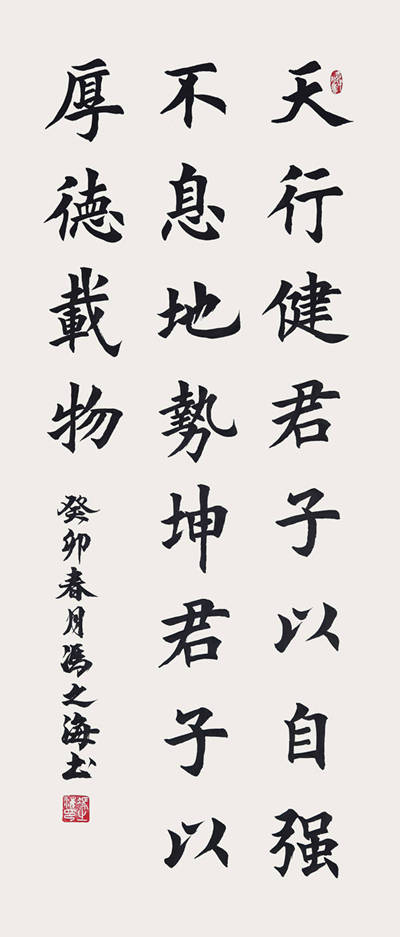 天行健君子以自强
不息地势坤君子以
厚德載物
癸卯春月馮之海书